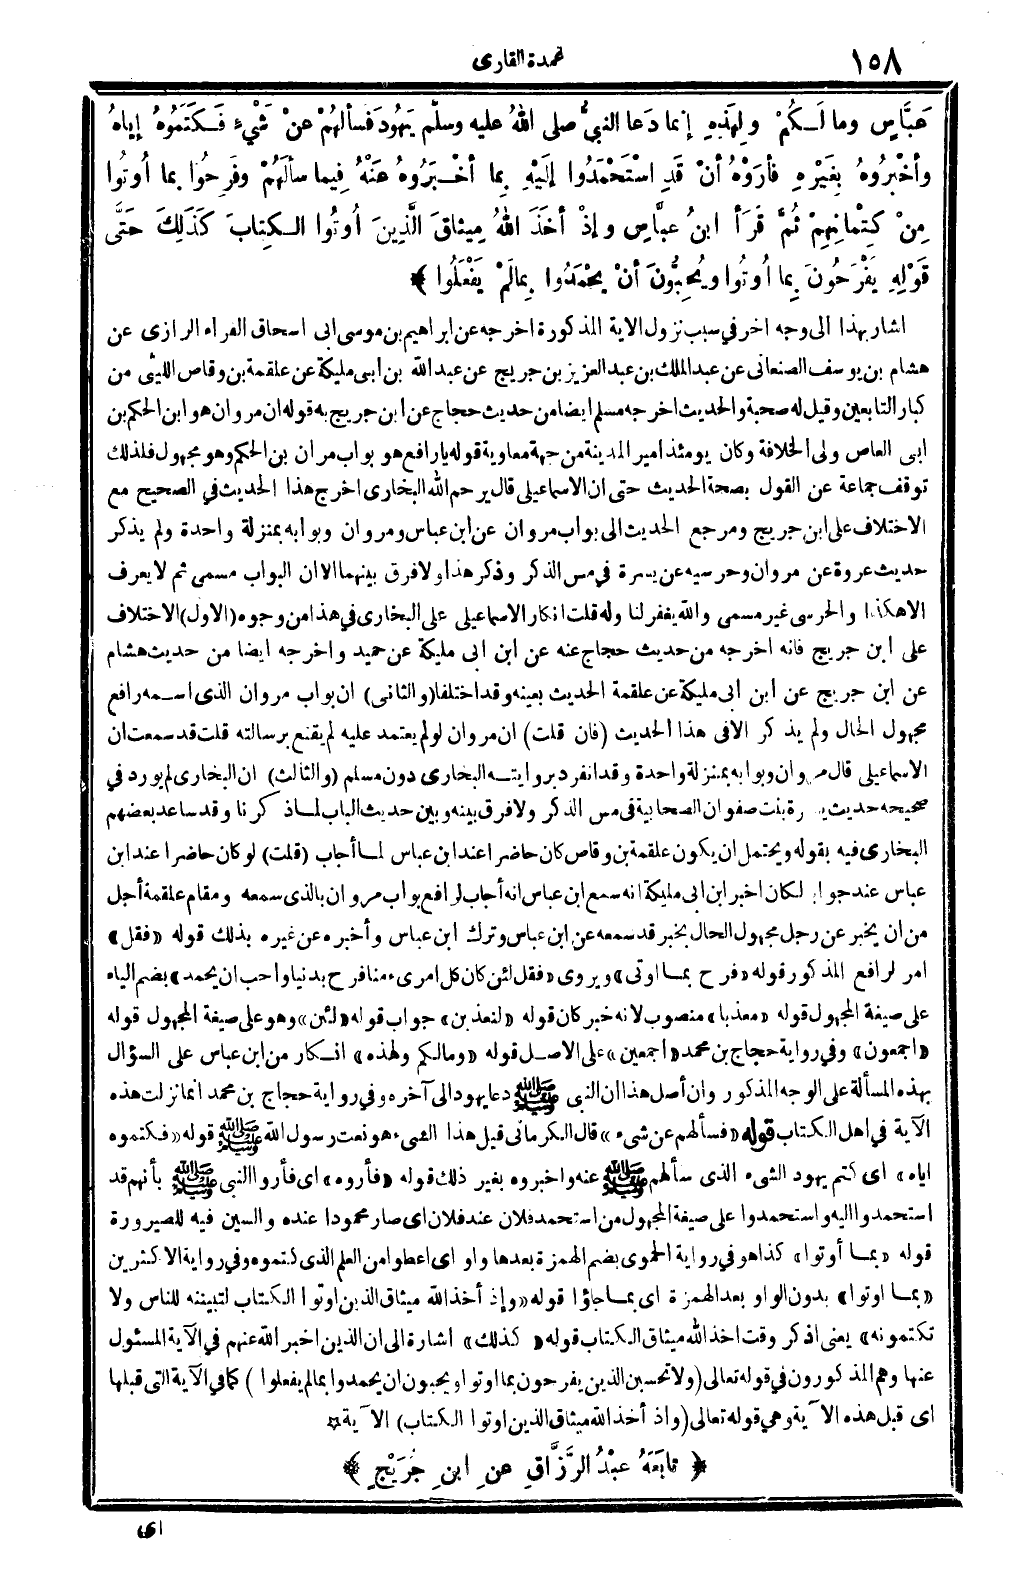 ١٥٨
عمدة القارى
عَبَّاسٍ وما لَـكُمْ ولِهَذِهِ إنما دَعا النبيُّ صلى اللهُ عليه وسلّم يَهُودَ فسألَهُمْ عنْ شَيْءٍ فَـكَتَمُوهُ إياهُ
وأخْبرُوهُ بِغَيْرِهِ فأرَوْهُ أنْ قَدِ اسْتَحْمَدُوا إلَيْهِ بِما أخْـبَرُوهُ عنْهُ فِيما سألَهُمْ وفَرِحُوا بِما أُوتُوا
مِنْ كِتْمانِهِمْ ثُمَّ قَرَأ ابنُ عبَّاسٍ وإذْ أخَذَ اللهُ مِيثاقَ الَّذِينَ أُوتُوا الـكِتابَ كَذَلِكَ حَتَّى
قَوْلِهِ يَفْرَحُونَ بِما أُوتُوا ويُحِبُّونَ أنْ يحْمَدُوا بِمالَمْ يَفْعَلُوا ﴾
اشار بهذا الى وجه اخر في سبب نزول الاية المذكورة اخرجه عن ابراهيم بن موسى ابى اسحاق الفراء الرازى عن
هشام بن يوسف الصنعانى عن عبد الملك بن عبد العزيز بن جريج عن عبد الله بن أبى مليكة عن علقمة بن وقاص الليثى من
كبار التابعين وقيل له صحبة والحديث اخرجه مسلم ايضا من حديث حجاج عن ابن جريج به قوله ان مروان هو ابن الحكم بن
ابى العاص ولى الخلافة وكان يومئذ امير المدينة من جهة معاوية قوله يا رافع هو بواب مران بن الحكم وهو مجهول فلذلك
توقف جماعة عن القول بصحة الحديث حتى ان الاسماعيلى قال يرحم الله البخارى اخرج هذا الحديث في الصحيح مع
الاختلاف على ابن جريج ومرجع الحديث الى بواب مروان عن ابن عباس ومروان وبوابه بمنزلة واحدة ولم يذكر
حديث عروة عن مروان وحرسيه عن بسرة في مس الذكر وذكر هذا ولا فرق بينهما الا ان البواب مسمى ثم لا يعرف
الا هكذا والحرسى غير مسمى والله يغفر لنا وله قلت انكار الاسماعيلى على البخارى في هذا من وجوه (الاول) الاختلاف
على ابن جريج فانه اخرجه من حديث حجاج عنه عن ابن ابى مليكة عن حميد واخرجه ايضا من حديث هشام
عن ابن جريج عن ابن ابى مليكة عن علقمة الحديث بعينه وقد اختلفا (والثانى) ان بواب مروان الذى اسـمه رافع
مجهول الحال ولم يذكر الا في هذا الحديث (فان قلت) ان مروان لو لم يعتمد عليه لم يقنع برسالته قلت قد سمعت ان
الاسماعيلى قال مروان وبوابه بمنزلة واحدة وقد انفرد بروايتـه البخارى دون مسلم (والثالث) ان البخارى لم يورد في
صحيحه حديث بسرة بنت صفوان الصحابية في مس الذكر ولا فرق بينه وبين حديث الباب لمـا ذكرنا وقد ساعد بعضهم
البخارى فيه بقوله ويحتمل ان يكون علقمة بن وقاص كان حاضرا عند ابن عباس لمـا أجاب (قلت) لو كان حاضرا عند ابن
عباس عند جوابه لكان اخبر ابن ابى مليكة انه سمع ابن عباس انه أجاب لرافع بواب مروان بالذى سمعه ومقام علقمة أجل
من ان يخبر عن رجل مجهول الحال بخبر قد سمعه عن ابن عباس وترك ابن عباس وأخبره عن غيره بذلك قوله «فقل»
امر لرافع المذكور قوله «فرح بمـا اوتى» ويروى «فقل لئن كان كل امرىء منا فرح بدنيا واحب ان يحمد» بضم الياء
على صيغة المجهول قوله «معذبا» منصوب لانه خبر كان قوله «لنعذبن» جواب قوله «لئن» وهو على صيغة المجهول قوله
«اجمعون» وفي رواية حجاج بن محمد «اجمعين» على الاصـل قوله «ومالكم ولهذه» انـكار من ابن عباس على السؤال
بهذه المسألة على الوجه المذكور وان أصل هذا ان النبى ﷺ دعا يهود الى آخره وفي رواية حجاج بن محمد انما نزلت هذه
الآية في اهل الـكتاب قوله «فسألهم عن شىء» قال الكرمانى قيل هذا الشىء هو نعت رسول الله ﷺ قوله «فـكتموه
اياه» اى كتم يهود الشىء الذى سألهم ﷺ عنه واخبروه بغير ذلك قوله «فأروه» اى فأروا النبى ﷺ بأنهم قد
استحمدوا اليه واستحمدوا على صيغة المجهول من استحمد فلان عند فلان اى صار محمودا عنده والسين فيه للصيرورة
قوله «بمـا أوتوا» كذا هو في رواية الحموى بضم الهمزة بعدها واو اى اعطوا من العلم الذى كتموه وفي رواية الاكثرين
«بمـا اوتوا» بدون الواو بعد الهمزة اى بمـا جاؤا قوله «وإذ أخذ الله ميثاق الذين اوتوا الـكتاب لتبيننه للناس ولا
تكتمونه» يعنى اذكر وقت اخذ الله ميثاق الـكتاب قوله «كذلك» اشارة الى ان الذين اخبر الله عنهم في الآية المسئول
عنها وهم المذكورون في قوله تعالى (ولا تحسبن الذين يفرحون بما اوتوا ويحبون ان يحمدوا بما لم يفعلوا) كما في الآية التى قبلها
اى قبل هذه الآية وهي قوله تعالى (واذ أخذ الله ميثاق الذين اوتوا الـكتاب) الآية ☆
﴿ تابَعَهُ عبْدُ الرَّزَّاقِ عنِ ابنِ جُرَيْجٍ ﴾
اى